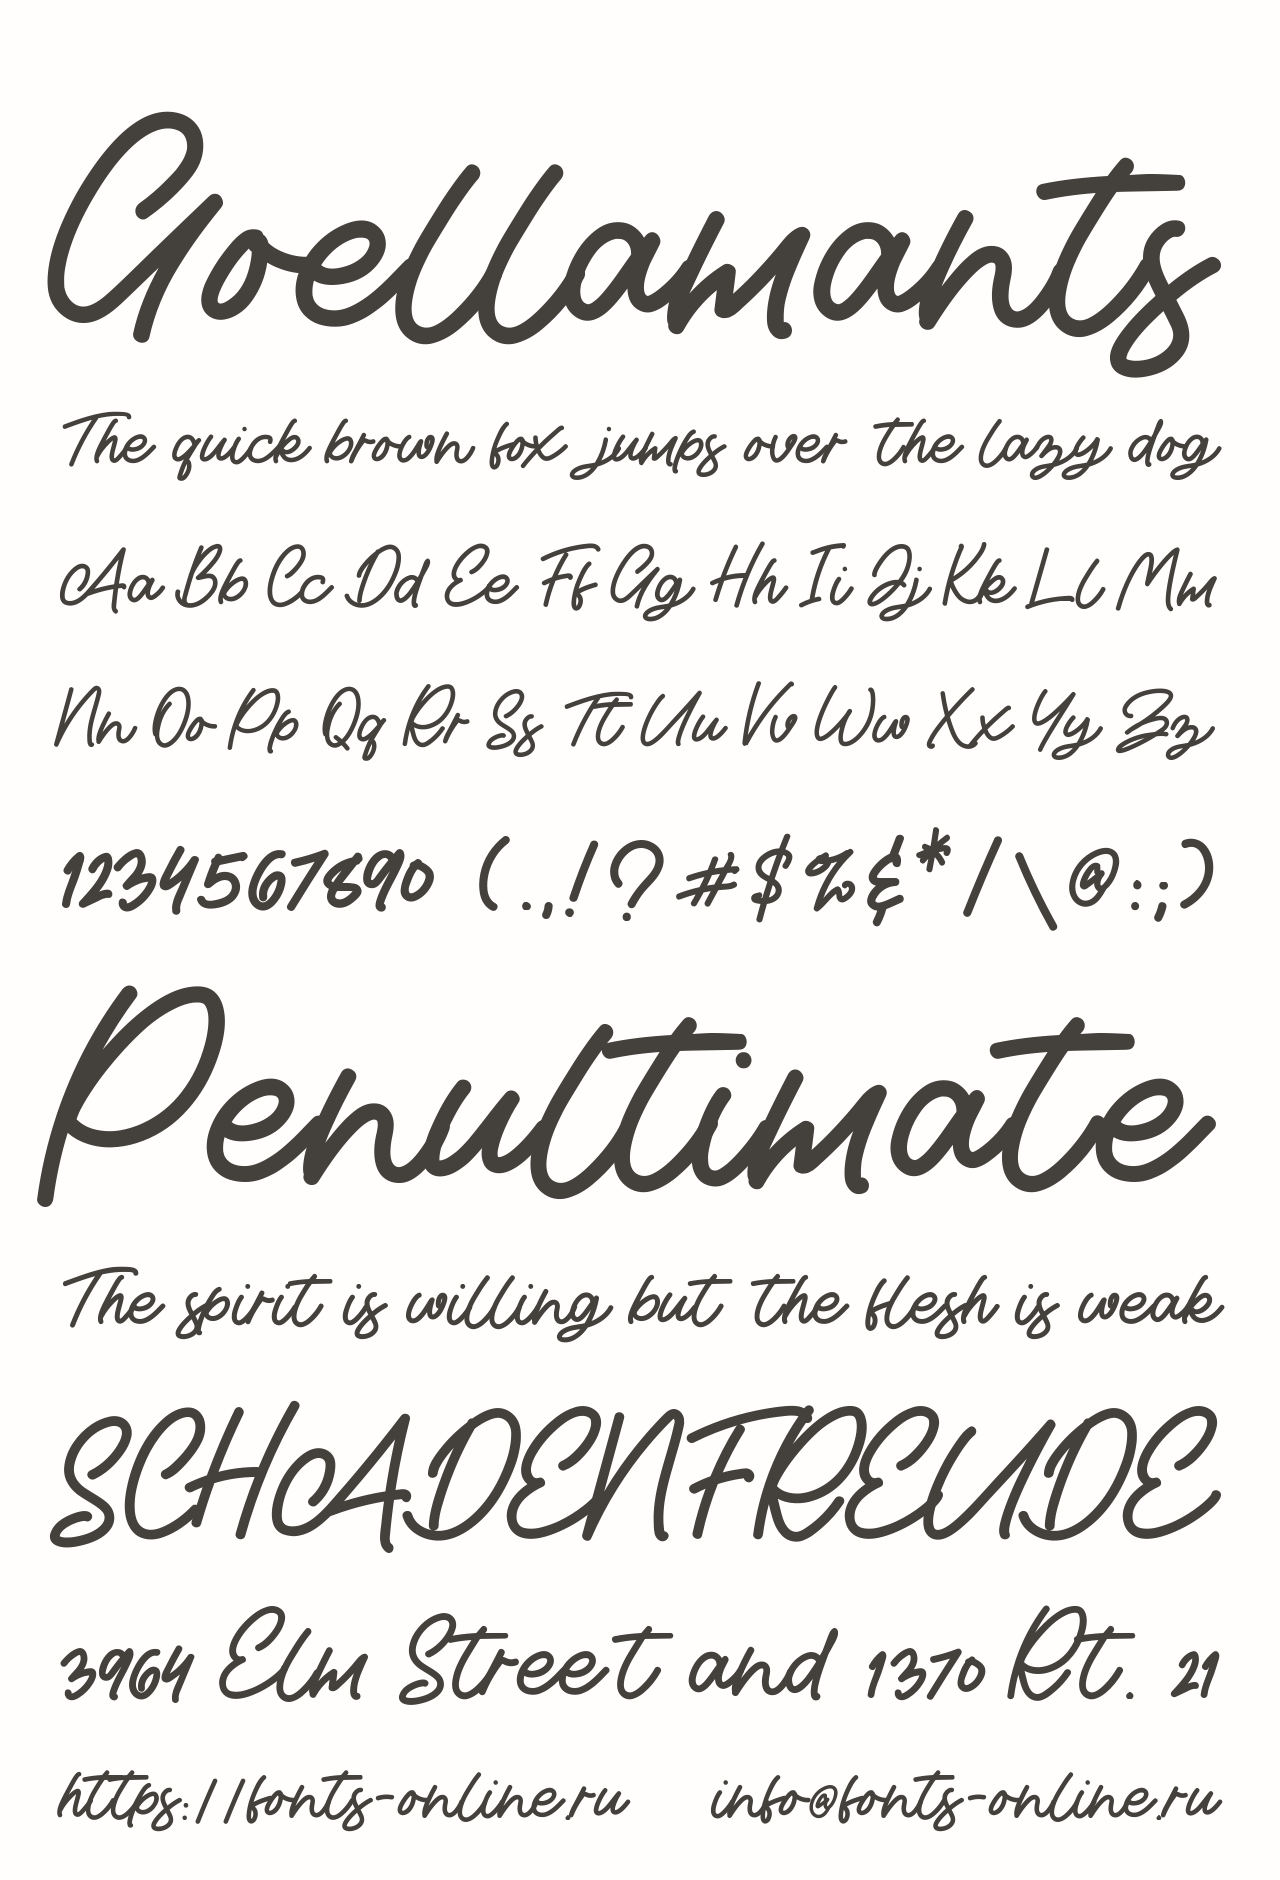 Goellamants
The quick brown fox jumps over the lazy dog
Aa Bb Cc Dd Ee Ff Gg Hh Ii Jj Kk Ll Mm
Nn Oo Pp Qq Rr Ss Tt Uu Vv Ww Xx Yy Zz
1234567890 (.,!?#$%&*/\@:;)
Penultimate
The spirit is willing but the flesh is weak
SCHADENFREUDE
3964 Elm Street and 1370 Rt. 21
https://fonts-online.ru info@fonts-online.ru